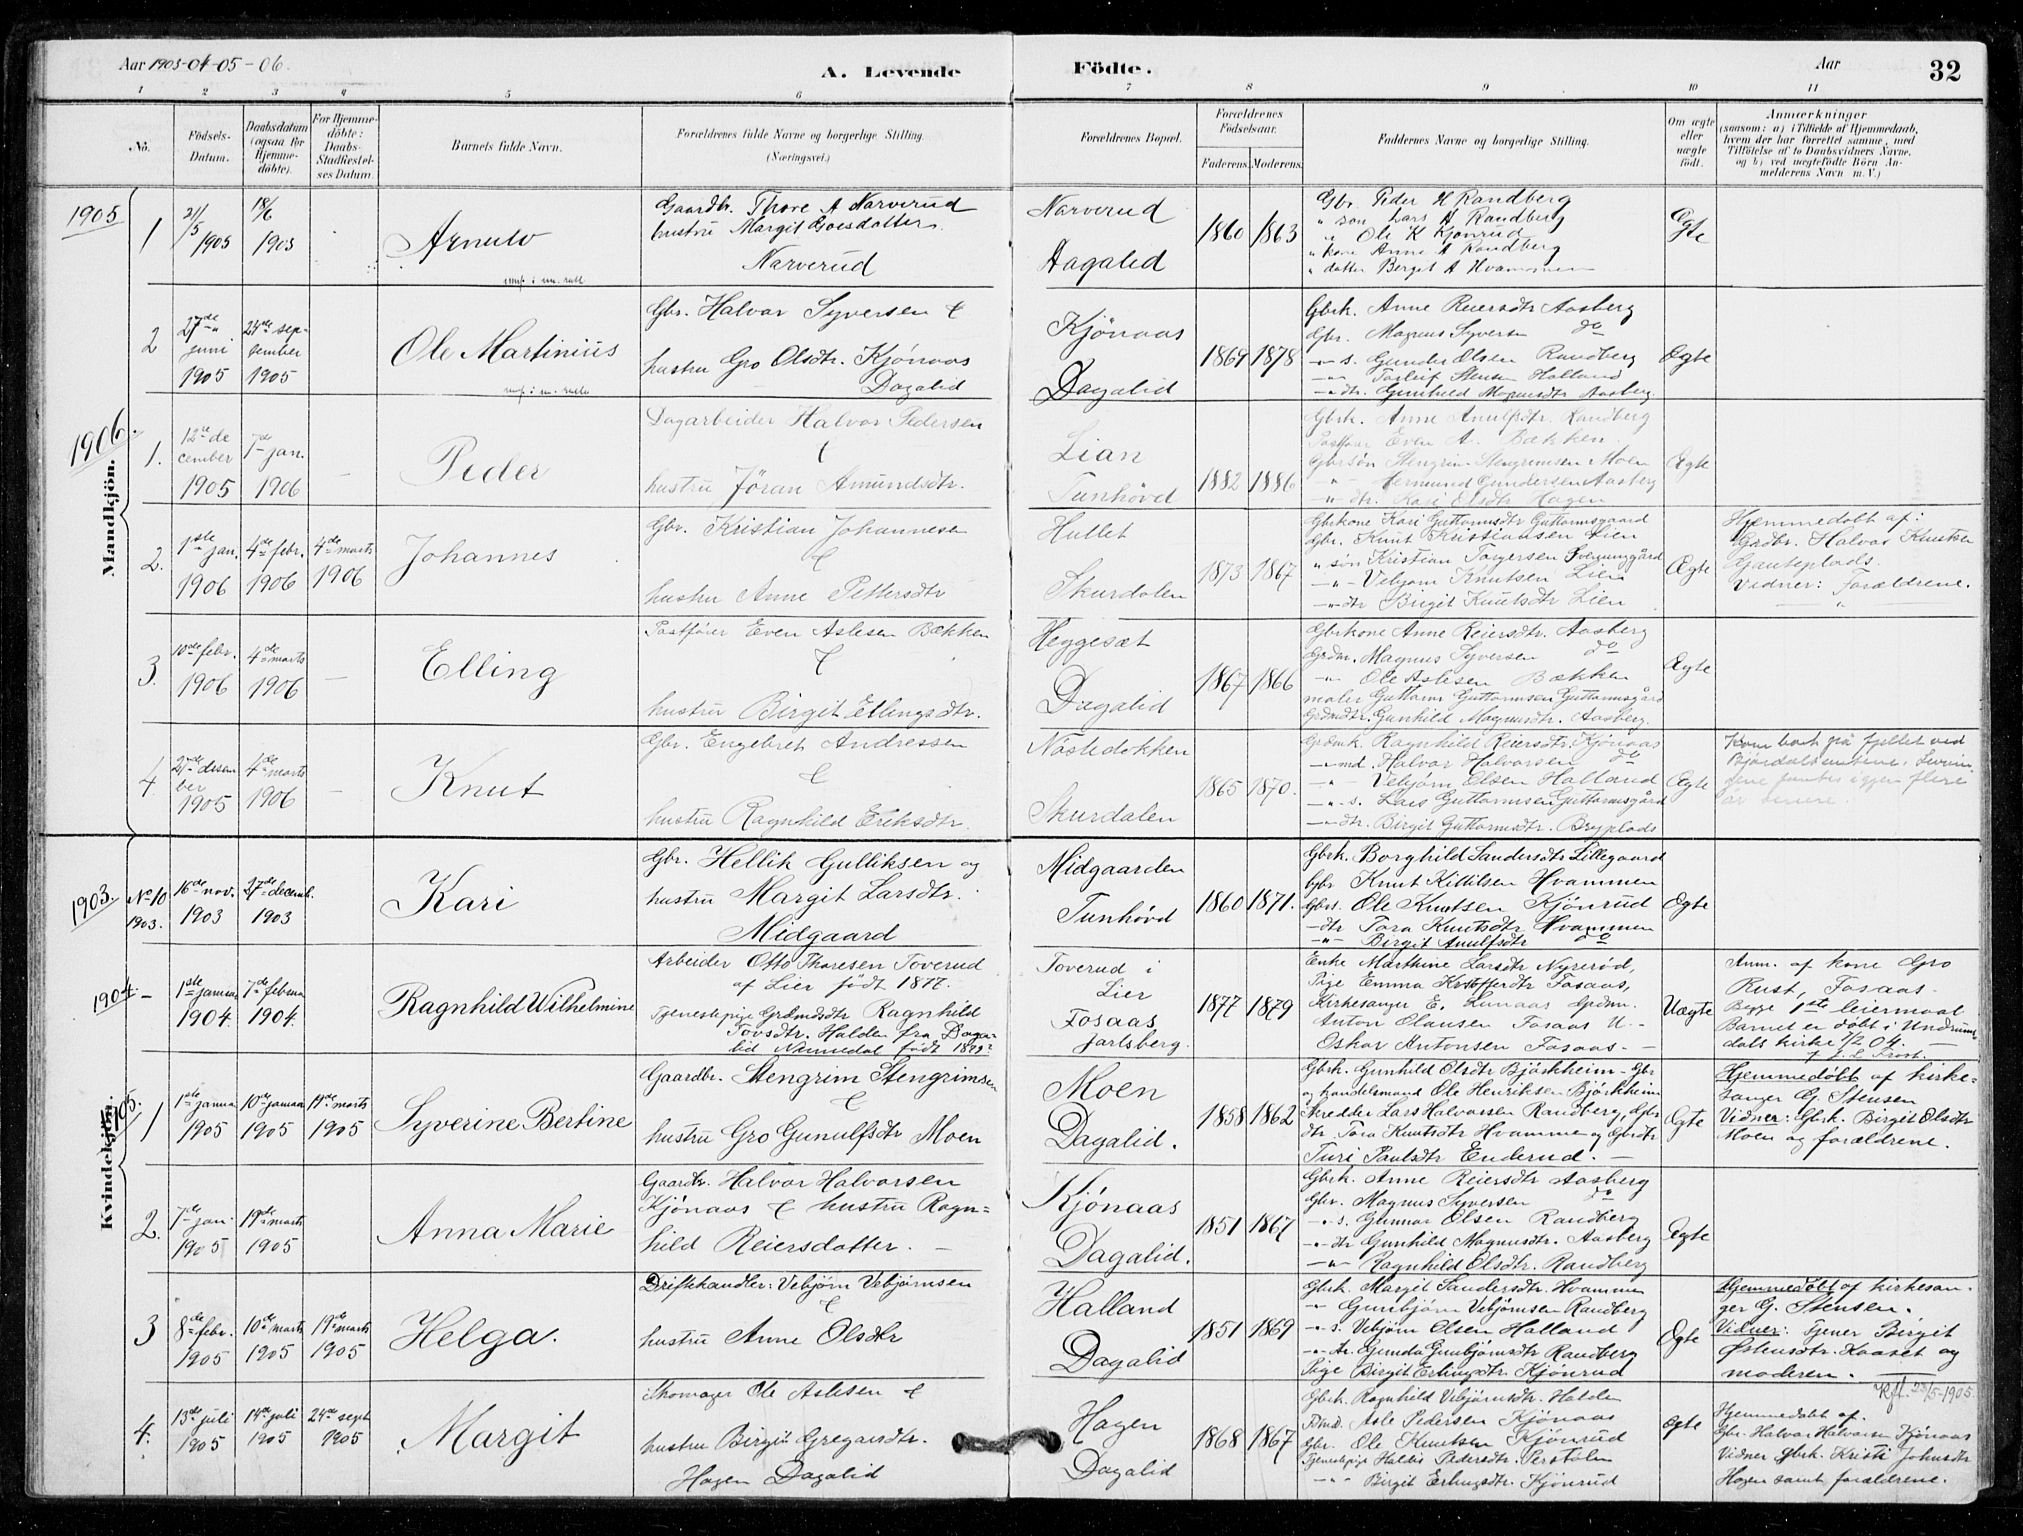 Aar 1903-04-05-06.
A. Levende
Födte.
Aar
32
1 2 3 4 5 6 7 8 9 10 11
No.
Födsels-Datum.
Daabsdatum (ogsaa for Hjemmedöbte).
For Hjemmedöbte: Daabs-Stadfæstelses Datum.
Barnets fulde Navn.
Forældrenes fulde Navne og borgerlige Stilling.
(Næringsvei.)
Forældrenes Bopæl.
Forældrenes Födselsaar.
Faderens. Moderens.
Faddernes Navne og borgerlige Stilling.
Om ægte eller uægte födt.
Anmærkninger
(saasom: a) i Tilfælde af Hjemmedaab, hvem der har forrettet samme, med Tilföielse af to Daabsvidners Navne, og b) ved uægtefödte Börn Anmelderens Navn m. V.)
Mandkjön.
1905
1 21/5 1905 18/6 1905
Arnulv
Gaardbr. Thore A Narverud
hustru Margit Goesdatter
Narverud
Narverud
Dagalid
1860 1863
Gbr. Peder H Randberg
" søn Lars A Randberg
" Ole K Kjönrud
" kone Anne A Randberg
" datter Berget A Hvammen
Ægte
2 27de juni 1905 24de september 1905
Ole Martinius
Gbr. Halvor Syversen &
hustru Gro Olsdtr. Kjónaas
Dagalid
Kjönaas
Dagalid
1869 1878
Gbrk. Anne Reiersdtr Aasberg
Gbr. Magnus Syversen do
-"- s. Gunder Olsen Randberg
-"- Torleif Stensen Halland
-"- dtr. Gunhild Magnusdtr Aasberg
Ægte
1906.
1. 12te december 1905 7de jan. 1906 -
Peder
Dagarbeider Halvor Pedersen
&
hustru Jöran Amundsdtr.
Lian
Tunhövd
1882 1886
Gbrk. Anne Arnulfsdtr. Randberg
Postfører Even A. Bækken.
Gbrsøn Stengrim Stengrimsen Moen
-"- Hermund Gundersen Aasberg
-"- dtr. Kari Olsdtr Hagen
Ægte
2. 1ste jan. 1906 4de febr. 1906 4de marts 1906
Johannes
Gbr. Kristian Johannesen
&
hustru Anne Pettersdtr
Hullet
Skurdalen
1873 1867
Gbrkone Kari Guttormsdtr Guttormsgaard
Gbr. Knut Kristiansen Lien
" søn Kristian Torgersen Svennunggård
-"- Vebjørn Knutsen Lien
-"- dtr Birgit Knutsdtr Lien
Ægte
Hjemmedøbt af:
Gaardbr. Halvor Knutsen
Gauteplads.
Vidner: Forældrene.
3. 10de febr. 1906 4de marts 1906 -
Elling
Postfører Even Aslesen Bækken
&
hustru Birgit Ellingsdtr.
Heggesæt
Dagalid
1867 1866
Gbrkone Anne Reiersdtr. Aasberg
Grdm. Magnus Syversen do
-"- Ole Aslesen Bækken
maler Guttorm Guttormsen Guttormsgård
Grdmdtr. Gunhild Magnusdtr. Aasberg.
Ægte
4. 27de desember 1905 4de marts 1906 -
Knut
Gbr. Engebret Andressen
&
hustru Ragnhild Eriksdtr.
Nöstedokken
Skurdalen
1865 1870.
Grdmk. Ragnhild Reiersdtr. Kjönaas
-"- md. Halvor Halvorsen do
-"- Vebjørn Olsen Halland
-"- s. Lars Guttormsen Guttormsgård
-"- dtr. Birgit Guttormsdtr. Bryplads
Ægte
Kom bort på fjellet ved
Kvindekjön.
1903.
No 10 1903. 16de nov. 1903 27de decemb. 1903
Kari
Gbr. Hellik Gulliksen og
hustru Margit Larsdtr.
Midgaard
Midgaarden
Tunhövd
1860 1871.
Gbrk. Borghild Sandersdtr Lillegaard
Gbr. Knut Kittilsen Hvammen
Gbrs. Ole Knutsen Kjönrud
-dtr Tora Knutsdtr Hvammen
-"- Birgit Arnulfsdtr do
Ægte
1904. - 1ste januar 1904. 7de februar 1904.
Ragnhild Wilhelmine
Arbeider Otto Thoresen Toverud
af Lier født 1877.
Tjenestepige Grdmdsdtr Ragnhild
Tovsdtr. Halden fra Dagalid Nummedal født 1879.
Toverud i
Lier
Fosaas,
Jarlsberg.
1877 1879
Enke Marthine Larsdtr Nyrerød,
Pige Emma Kristofferdtr Fosaas,
Kirkesanger E. Lunaas Grdm.
Anton Olausen Fosaas U.-
Oskar Antonsen Fosaas.-
Uægte
Anm. af kone Gro
Rust, Fosaas.
Begge 1ste leiermaal
Barnet er döbt i Undrumsdals kirke 7/2 04.
1905.
1 1ste januar 1905 10de januar 1905 19de marts 1905
Syverine Bertine
Gaardbr. Stengrim Stengrimsen
&
hustru Gro Gunulfsdtr Moen
Moen
Dagalid.
1858 1862
Gbrk. Gunhild Olsdtr Björkheim - Gbr
og handelsmand Ole Henriksen Björkheim
Skredder Lars Halvorsen Randberg, Gbr
dtr. Tora Knutsdtr Hvamme og Gbrdtr
Turi Paulsdtr Enderud. -
Ægte
Hjemmedøbt af kirkesanger G. Stensen
Vidner: Gbrk. Birgit Olsdtr
Moen og forældrene.
2. 7de jan. 1905 19de marts 1905
Anna Marie
Gaardbr. Halvor Halvorsen
Kjónaas & hustru Ragnhild Reiersdatter. -
Kjónaas
Dagalid.
1851 1867
Gbrk. Anne Reiersdtr Aasberg
Gbr. Magnus Syversen do
-"- s. Gunnar Olsen Randberg
-"- dtr Gunhild Magnusdtr. Aasberg
-"- Ragnhild Olsdtr. Randberg
Ægte
3 8de febr. 1905 10de marts 1905 19de marts 1905
Helga.
Driftehandler: Vebjörn Vebjørnsen
&
hustru Anne Olsdtr
Halland
Dagalid
1851 1869
Gbrk. Margit Sandersdtr. Hvammen
-"- Gunbjørn Vebjørnsen Randberg
-"- s. Vebjørn Olsen Halland
-"- dtr. Gunda Gunbjørnsdtr Randberg
Pige Birgit Erlingsdtr. Kjönrud
Ægte
Hjemmedöbt af kirkesanger G. Stensen.
Vidner: Tjener Birgit
Østensdtr. Kaaset og
moderen. -
4. 13de juli 1905 14de juli 1905 24de sept 1905
Margit
Skomager Ole Aslesen &
hustru Birgit Gregarsdtr.
Hagen Dagalid
Hagen
Dagalid
1868 1867
Gbrk. Ragnhild Vebjørnsdtr. Halden
Asle Pedersen Kjönaas
Gbr. Ole Knutsen Kjönrud
Tjenestepige Halbis Pedersdtr. Perstölen
-"- Birgit Erlingsdtr. Kjönrud
Ægte
Hjemmedöbt af
Gbr. Halvor Halvorsen Kjönaas
Vidner Gbrk. Kristi Johnsdtr
Hagen samt forældrene.